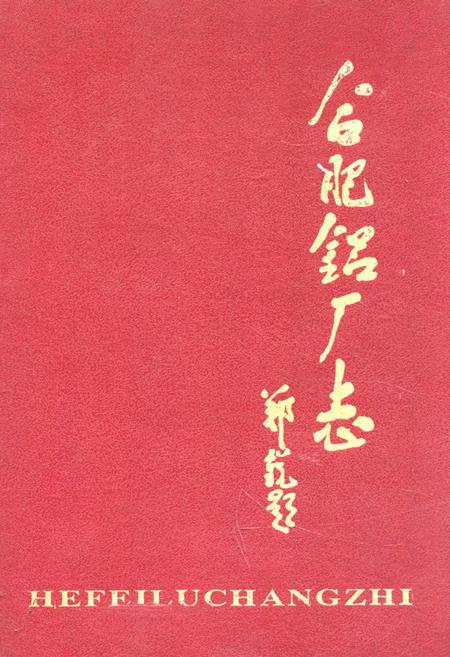 合肥铝厂志
郑锐题
HEFEILUCHANGZHI